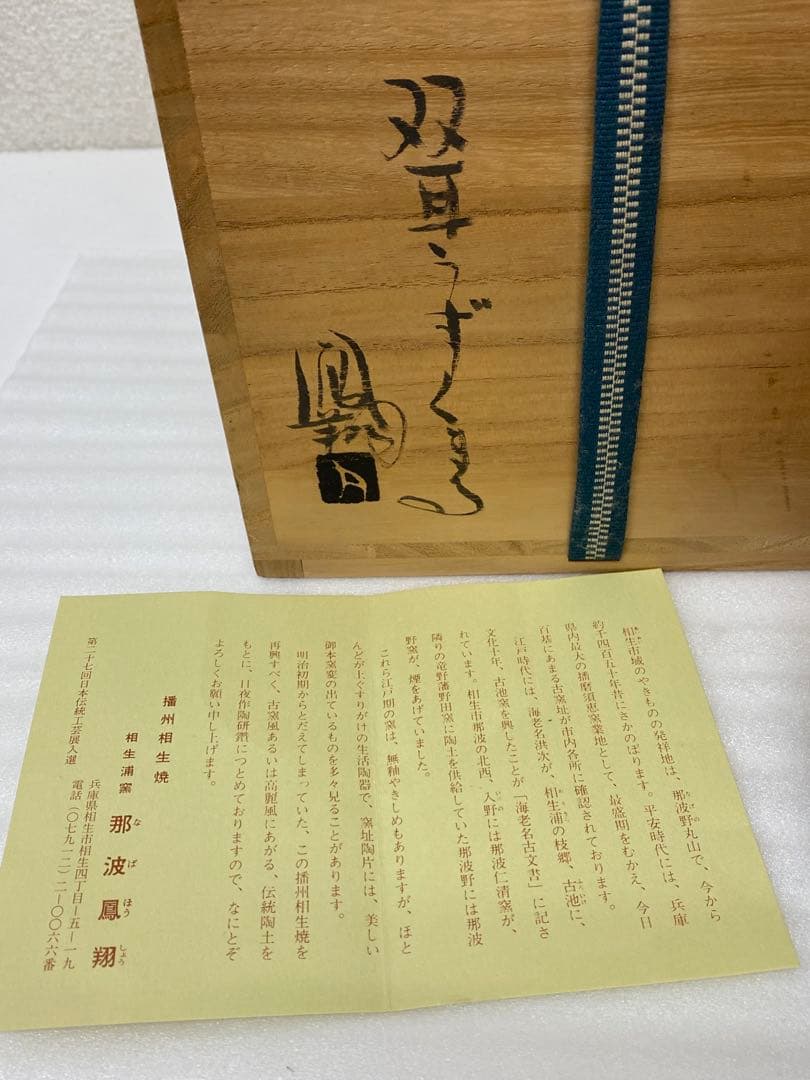 双耳うずくまる
鳳翔
相生市域のやきものの発祥地は、那波野丸山で、今から
約千四百五十年昔にさかのぼります。平安時代には、兵庫
県内最大の播磨須恵窯業地として、最盛期をむかえ、今日
百基にあまる古窯址が市内各所に確認されております。
江戸時代には、海老名洪次が、相生浦の枝郷、古池に、
文化十年、古池窯を興したことが「海老名古文書」に記さ
れています。相生市那波の北西、入野には那波仁清窯が、
隣りの竜野藩野田窯に陶土を供給していた那波野には那波
野窯が、煙をあげていました。
これら江戸期の窯は、無釉やきしめもありますが、ほと
んどが土ぐすりがけの生活陶器で、窯址陶片には、美しい
御本窯変の出ているものを多々見ることがあります。
明治初期からとだえてしまっていた、この播州相生焼を
再興すべく、古窯風あるいは高麗風にあがる、伝統陶土を
もとに、日夜作陶研鑽につとめておりますので、なにとぞ
よろしくお願い申し上げます。
播州相生焼
相生浦窯 那波鳳翔
なばほうしょう
兵庫県相生市相生四丁目ー五ー一九
電話(〇七九一二)二ー〇〇六六番
第二十七回日本伝統工芸展入選